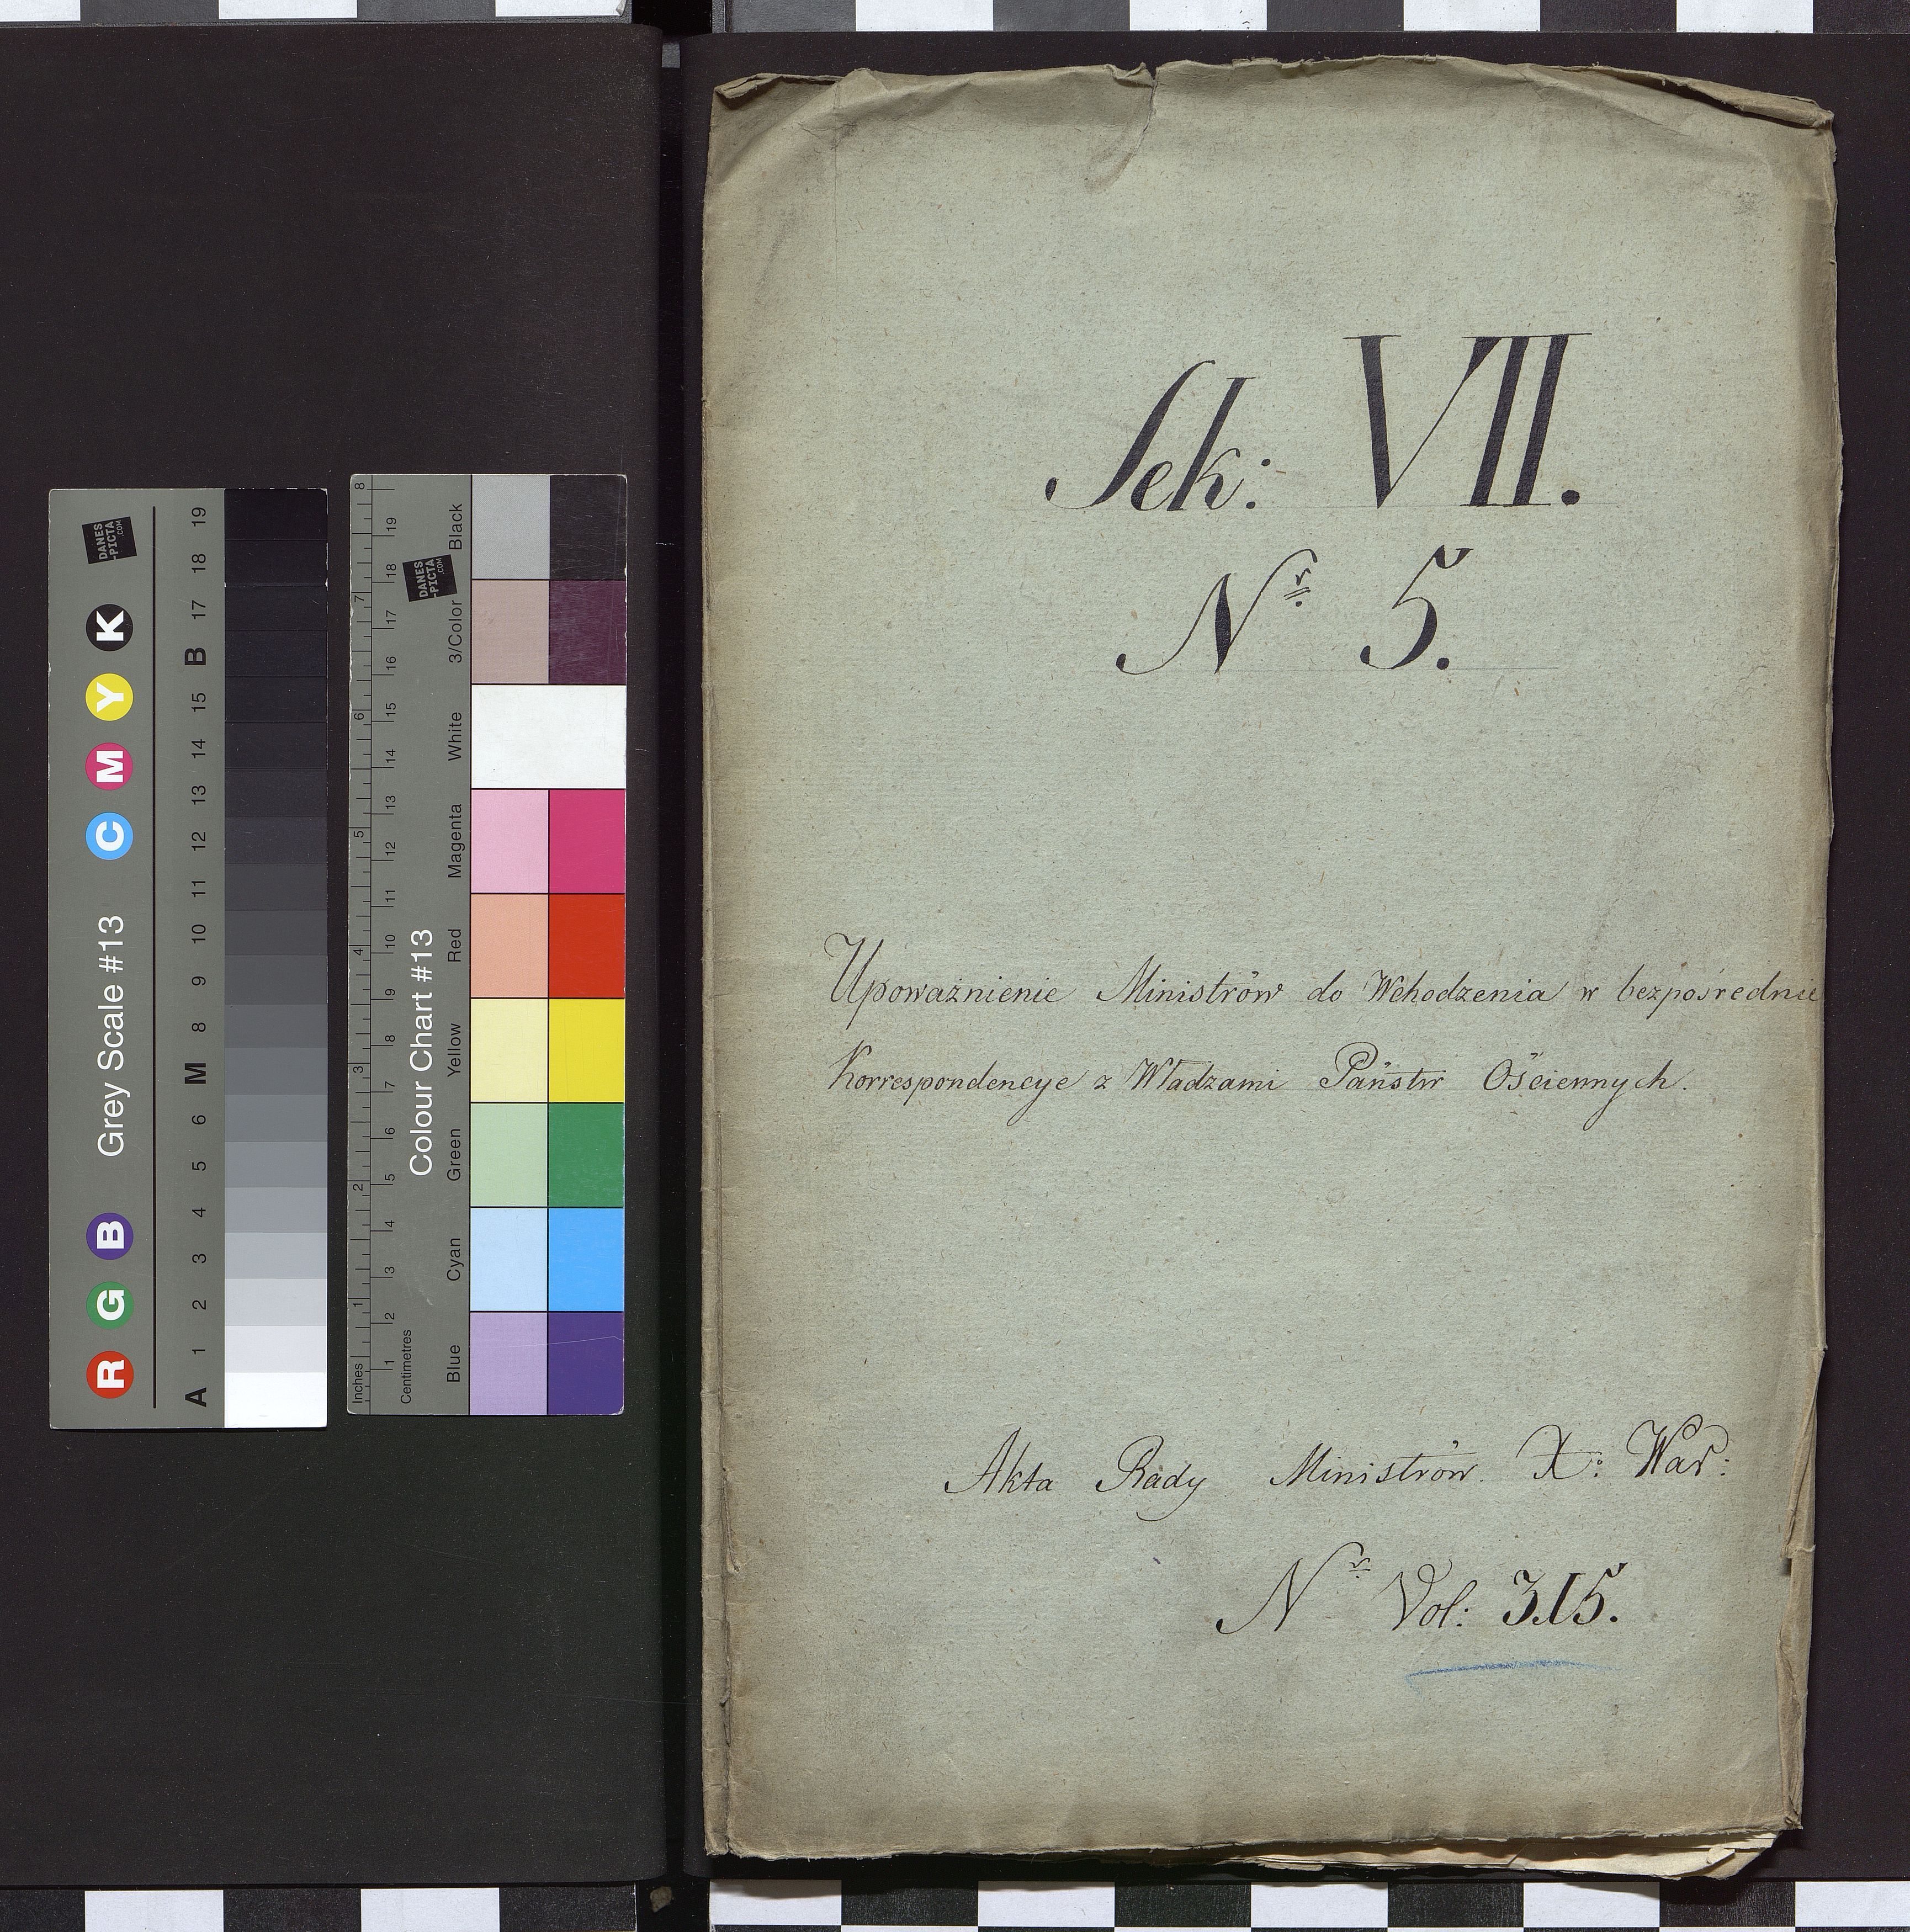 Sek: VII.
Nr 5.
Upoważnienie Ministrów do Wchodzenia w bezpośrednie
Korrespondencye z Władzami Państw Ościennych.
Akta Rady Ministrów X: War:
Nr Vol: 315.
Grey Scale #13
R G B C M Y K
A 1 2 3 4 5 6 M 8 9 10 11 12 13 14 15 B 17 18 19
DANES
-PICTA
.COM
Colour Chart #13
Inches 1 2 3 4 5 6 7 8
Centimetres 1 2 3 4 5 6 7 8 9 10 11 12 13 14 15 16 17 18 19
Blue Cyan Green Yellow Red Magenta White 3/Color Black
DANES
-PICTA
.COM